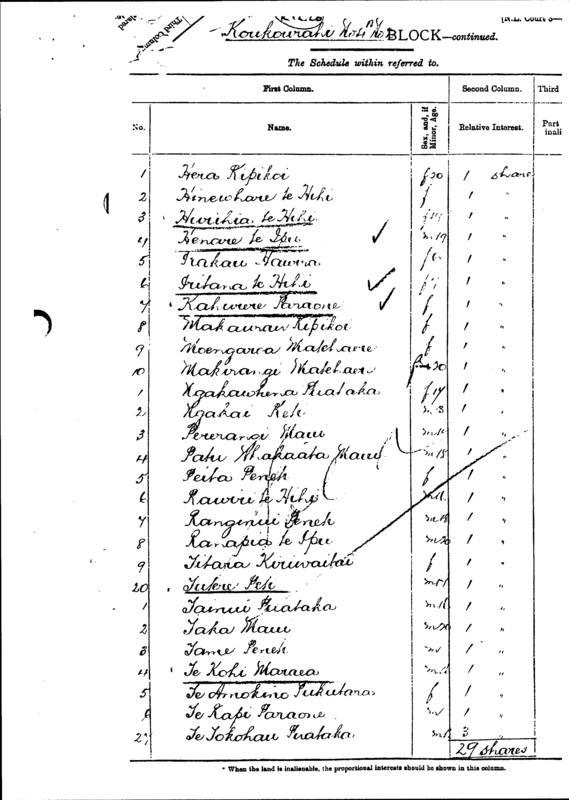 Third Column
[N.L. Court 8—
Koukourahi No. BLOCK—continued.
The Schedule within referred to.
First Column. Second Column. Third
No. Name. Sex, and, if Minor, Age. Relative Interest. Part inali
1 Hera Kipikoi f20 1 share
2 Hinewhare te Hihi f 1 "
3 Hurihia te Hihi 1 "
4 Henare te Ipu m19 1 "
5 Irakau Tawera 1 "
6 Iritana te Hihi 1 "
7 Kahurere Paraone f 1 "
8 Makaurau Kipikoi f 1 "
9 Moengaroa Matehaere f 1 "
10 Makirangi Matehaere 20 1 "
1 Ngakawhena Puataka f14 1 "
2 Ngahai Keti m 3 1 "
3 Pererangi Maui 1 "
4 Patu Whakaata Maui m18 1 "
5 Peita Peneti f 1 "
6 Rawiri te Hihi 1 "
7 Ranginui Peneti m18 1 "
8 Ranapia te Ipu m20 1 "
9 Titaria Kiriwaitai f 1 "
20 Tutere Peti 1 "
1 Tainui Puataka 1 "
2 Taka Maui m20 1 "
3 Tame Peneti 1 "
4 Te Kohi Maraea 1 "
5 Te Amokino Pukutara f 1 "
6 Te Kapi Paraone 1 "
27 Te Tokohau Puataka 3 "
29 shares
* When the land is inalienable, the proportional interests should be shown in this column.